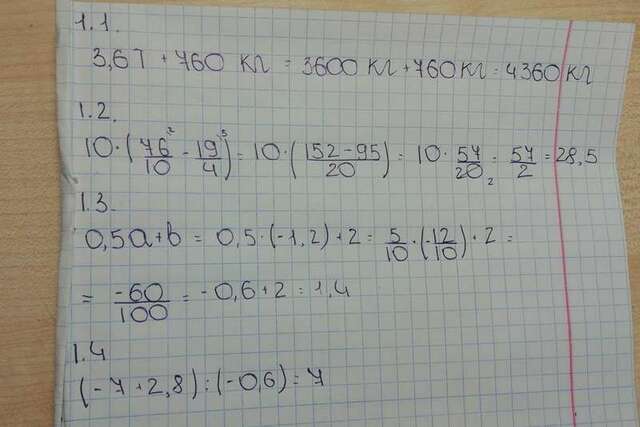 1.1.
3,6т + 760 кг = 3600 кг + 760 кг = 4360 кг
1.2.
10·(76²/10 - 19⁵/4) = 10·(152-95/20) = 10·57/20₂ = 57/2 = 28,5
1.3.
0,5a+b = 0,5·(-1,2)+2 = 5/10·(-12/10)+2 =
= -60/100 = -0,6+2 = 1,4
1.4
(-7+2,8):(-0,6) = 7